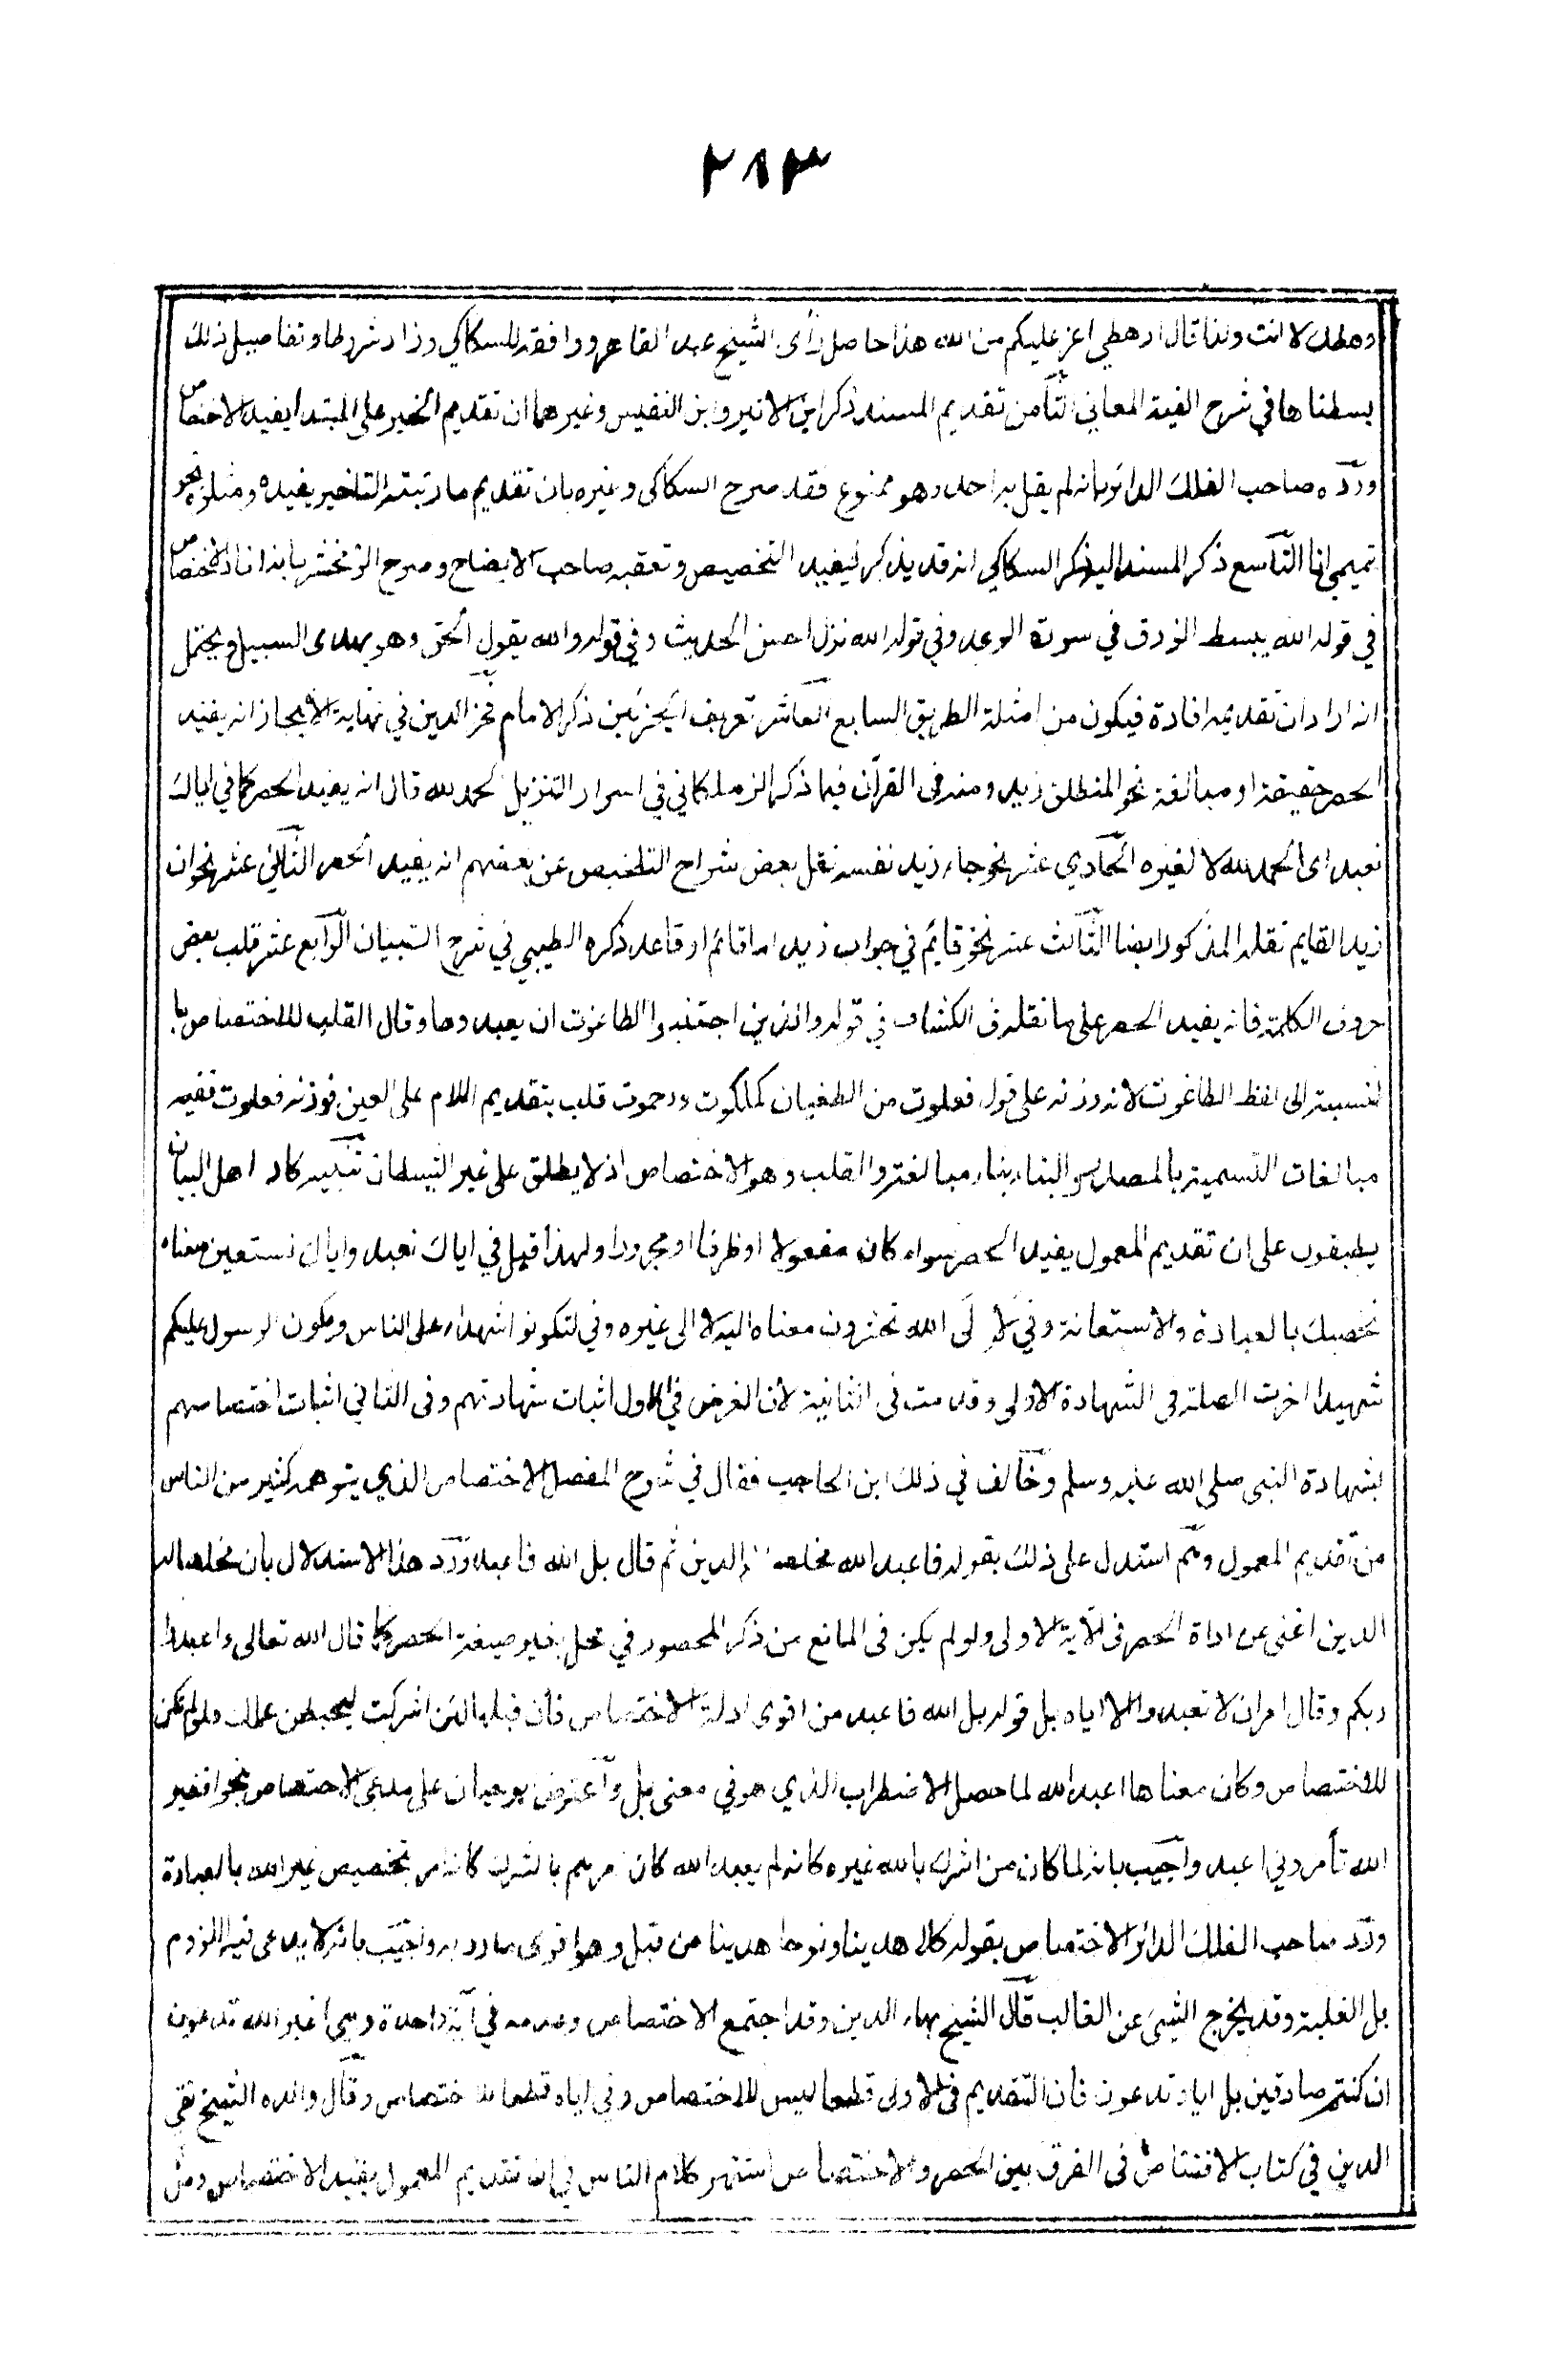 ٢٨٣
رهطك لا انت ولذا قال ارهطي اعز عليكم من الله هذا حاصل رأى الشيخ عبد القاهر ووافقه السكاكي وزاد شروطا وتفاصيل ذلك
بسطناها في شرح الفية المعاني الثامن تقديم المسند ذكر ابن الاثير وابن النفيس وغيرهما ان تقديم الخبر على المبتدا يفيد الاختصاص
وردّه صاحب الفلك الدائر بانه لم يقل به احد وهو ممنوع فقد صرح السكاكي وغيره بان تقديم ما رتبته التاخير يفيده ومثلوه بنحو
تميمي انا التاسع ذكر المسند اليه ذكر السكاكي انه قد يذكر ليفيد التخصيص وتعقبه صاحب الايضاح وصرح الزمخشري بانه افاد الاختصاص
في قوله الله يبسط الرزق في سورة الرعد وفي قوله الله نزل احسن الحديث وفي قوله والله يقول الحق وهو يهدى السبيل ويحتمل
انه اراد ان تقديمه افادة فيكون من امثلة الطريق السابع العاشر تعريف الجزئين ذكر الامام فخر الدين في نهاية الايجاز انه يفيد
الحصر حقيقة او مبالغة نحو المنطلق زيد ومنه في القرآن فيما ذكر الزملكاني في اسرار التنزيل الحمد لله قال انه يفيد الحصر كما في اياك
نعبد اى الحمد لله لا لغيره الحادي عشر نحو جاء زيد نفسه نقل بعض شراح التلخيص عن بعضهم انه يفيد الحصر الثاني عشر نحو ان
زيد القايم نقله المذكور ايضا الثالث عشر نحو قائم في جواب زيد اما قائم او قاعد ذكره الطيبي في شرح التبيان الرابع عشر قلب بعض
حروف الكلمة فانه يفيد الحصر على ما نقله في الكشاف في قوله والذين اجتنبوا الطاغوت ان يعبدوها وقال القلب للاختصاص با
لنسبة الى لفظ الطاغوت لانه وزنه على قول فعلوت من الطغيان كملكوت ورحموت قلب بتقديم اللام على العين فوزنه فعلوت ففيه
مبالغات التسمية بالمصدر والبناء بناء مبالغة والقلب وهو الاختصاص اذ لا يطلق على غير الشيطان تنبيه كاد اهل البيان
يطبقون على ان تقديم المعمول يفيد الحصر سواء كان مفعولا او ظرفا او مجرورا ولهذا قيل في اياك نعبد واياك نستعين معناه
نخصك بالعبادة والاستعانة وفي لإلى الله تحشرون معناه اليه لا الى غيره وفي لتكونوا شهداء على الناس ويكون الرسول عليكم
شهيدا اخرت الصلة فى الشهادة الاولى وقدمت فى الثانية لان الغرض في الاول اثبات شهادتهم وفى الثاني اثبات اختصاصهم
بشهادة النبى صلى الله عليه وسلم وخالف في ذلك ابن الحاجب فقال في شرح المفصل الاختصاص الذي يتوهمه كثير من الناس
من تقديم المعمول وهم استدل على ذلك بقوله فاعبد الله مخلصا له الدين ثم قال بل الله فاعبد وردّ هذا الاستدلال بان مخلصا له
الدين اغنى عن اداة الحصر فى الآية الاولى ولو لم يكن فى المانع من ذكر المحصور في محل بغير صيغة الحصر كما قال الله تعالى واعبدوا
ربكم وقال امر ان لا تعبدوا الا اياه بل قوله بل الله فاعبد من اقوى ادلة الاختصاص فان قبلها لئن اشركت ليحبطن عملك ولو لم تكن
للاختصاص وكان معناها اعبد الله لما حصل الاضطراب الذي هو في معنى بل واعترض ابو حيان على مدعى الاختصاص بنحو افغير
الله تأمروني اعبد واجيب بانه لما كان من اشرك بالله غيره كانه لم يعبد الله كان امرهم بالشرك كانه امر بتخصيص غير الله بالعبادة
وردّ صاحب الفلك الدائر الاختصاص بقوله كلا هدينا ونوحا هدينا من قبل وهو اقوى ما رد به واجيب بانه لا يدعى فيه اللزوم
بل الغلبة وقد يخرج الشيئ عن الغالب قال الشيخ بهاء الدين وقد اجتمع الاختصاص وعدمه في آية واحدة وهي اغير الله تدعون
ان كنتم صادقين بل اياه تدعون فان التقديم فى الاولى قطعا ليس للاختصاص وفي اياه قطعا للاختصاص وقال والده الشيخ تقي
الدين في كتاب الاقتناص فى الفرق بين الحصر والاختصاص اشتهر كلام الناس في ان تقديم المعمول يفيد الاختصاص ومن